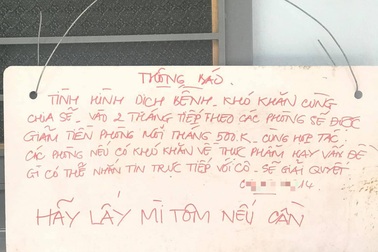 THÔNG BÁO.
TÌNH HÌNH DỊCH BỆNH - KHÓ KHĂN CÙNG
CHIA SẼ - VÀO 2 THÁNG TIẾP THEO CÁC PHÒNG SẼ ĐƯỢC
GIẢM TIỀN PHÒNG MỖI THÁNG 500.K - CÙNG HỢP TÁC
CÁC PHÒNG NẾU CÓ KHÓ KHĂN VỀ THỰC PHẨM HAY VẤN ĐỀ
GÌ CÓ THỂ NHẮN TIN TRỰC TIẾP VỚI CÔ - SẼ GIẢI QUYẾT
14
HÃY LẤY MÌ TÔM NẾU CẦN